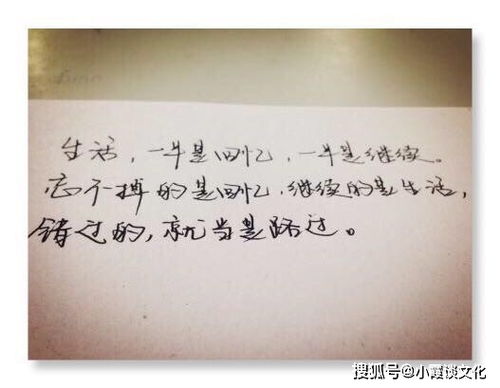 生活，一半是回忆，一半是继续。
忘不掉的是回忆，继续的是生活，
错过的，就当是路过。
搜狐号@小霞谈文化